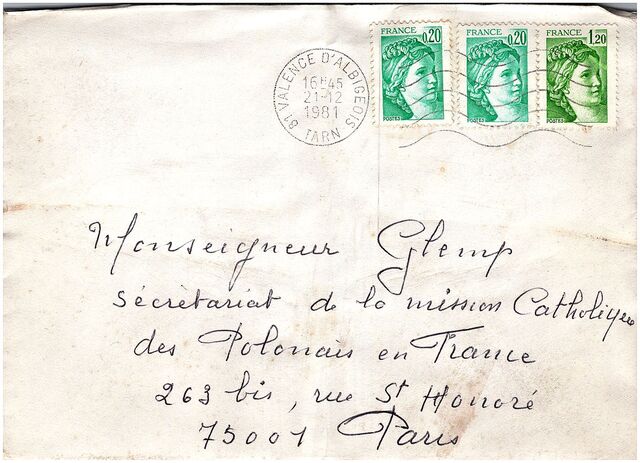 FRANCE 0,20
POSTES
FRANCE 0,20
POSTES
FRANCE 1,20
POSTES
81 VALENCE D'ALBIGEOIS
16H45
21-12
1981
TARN
Monseigneur Glemp
Sécrètariat de la mission Catholique
des Polonais en France
263 bis, rue St Honoré
75001 Paris